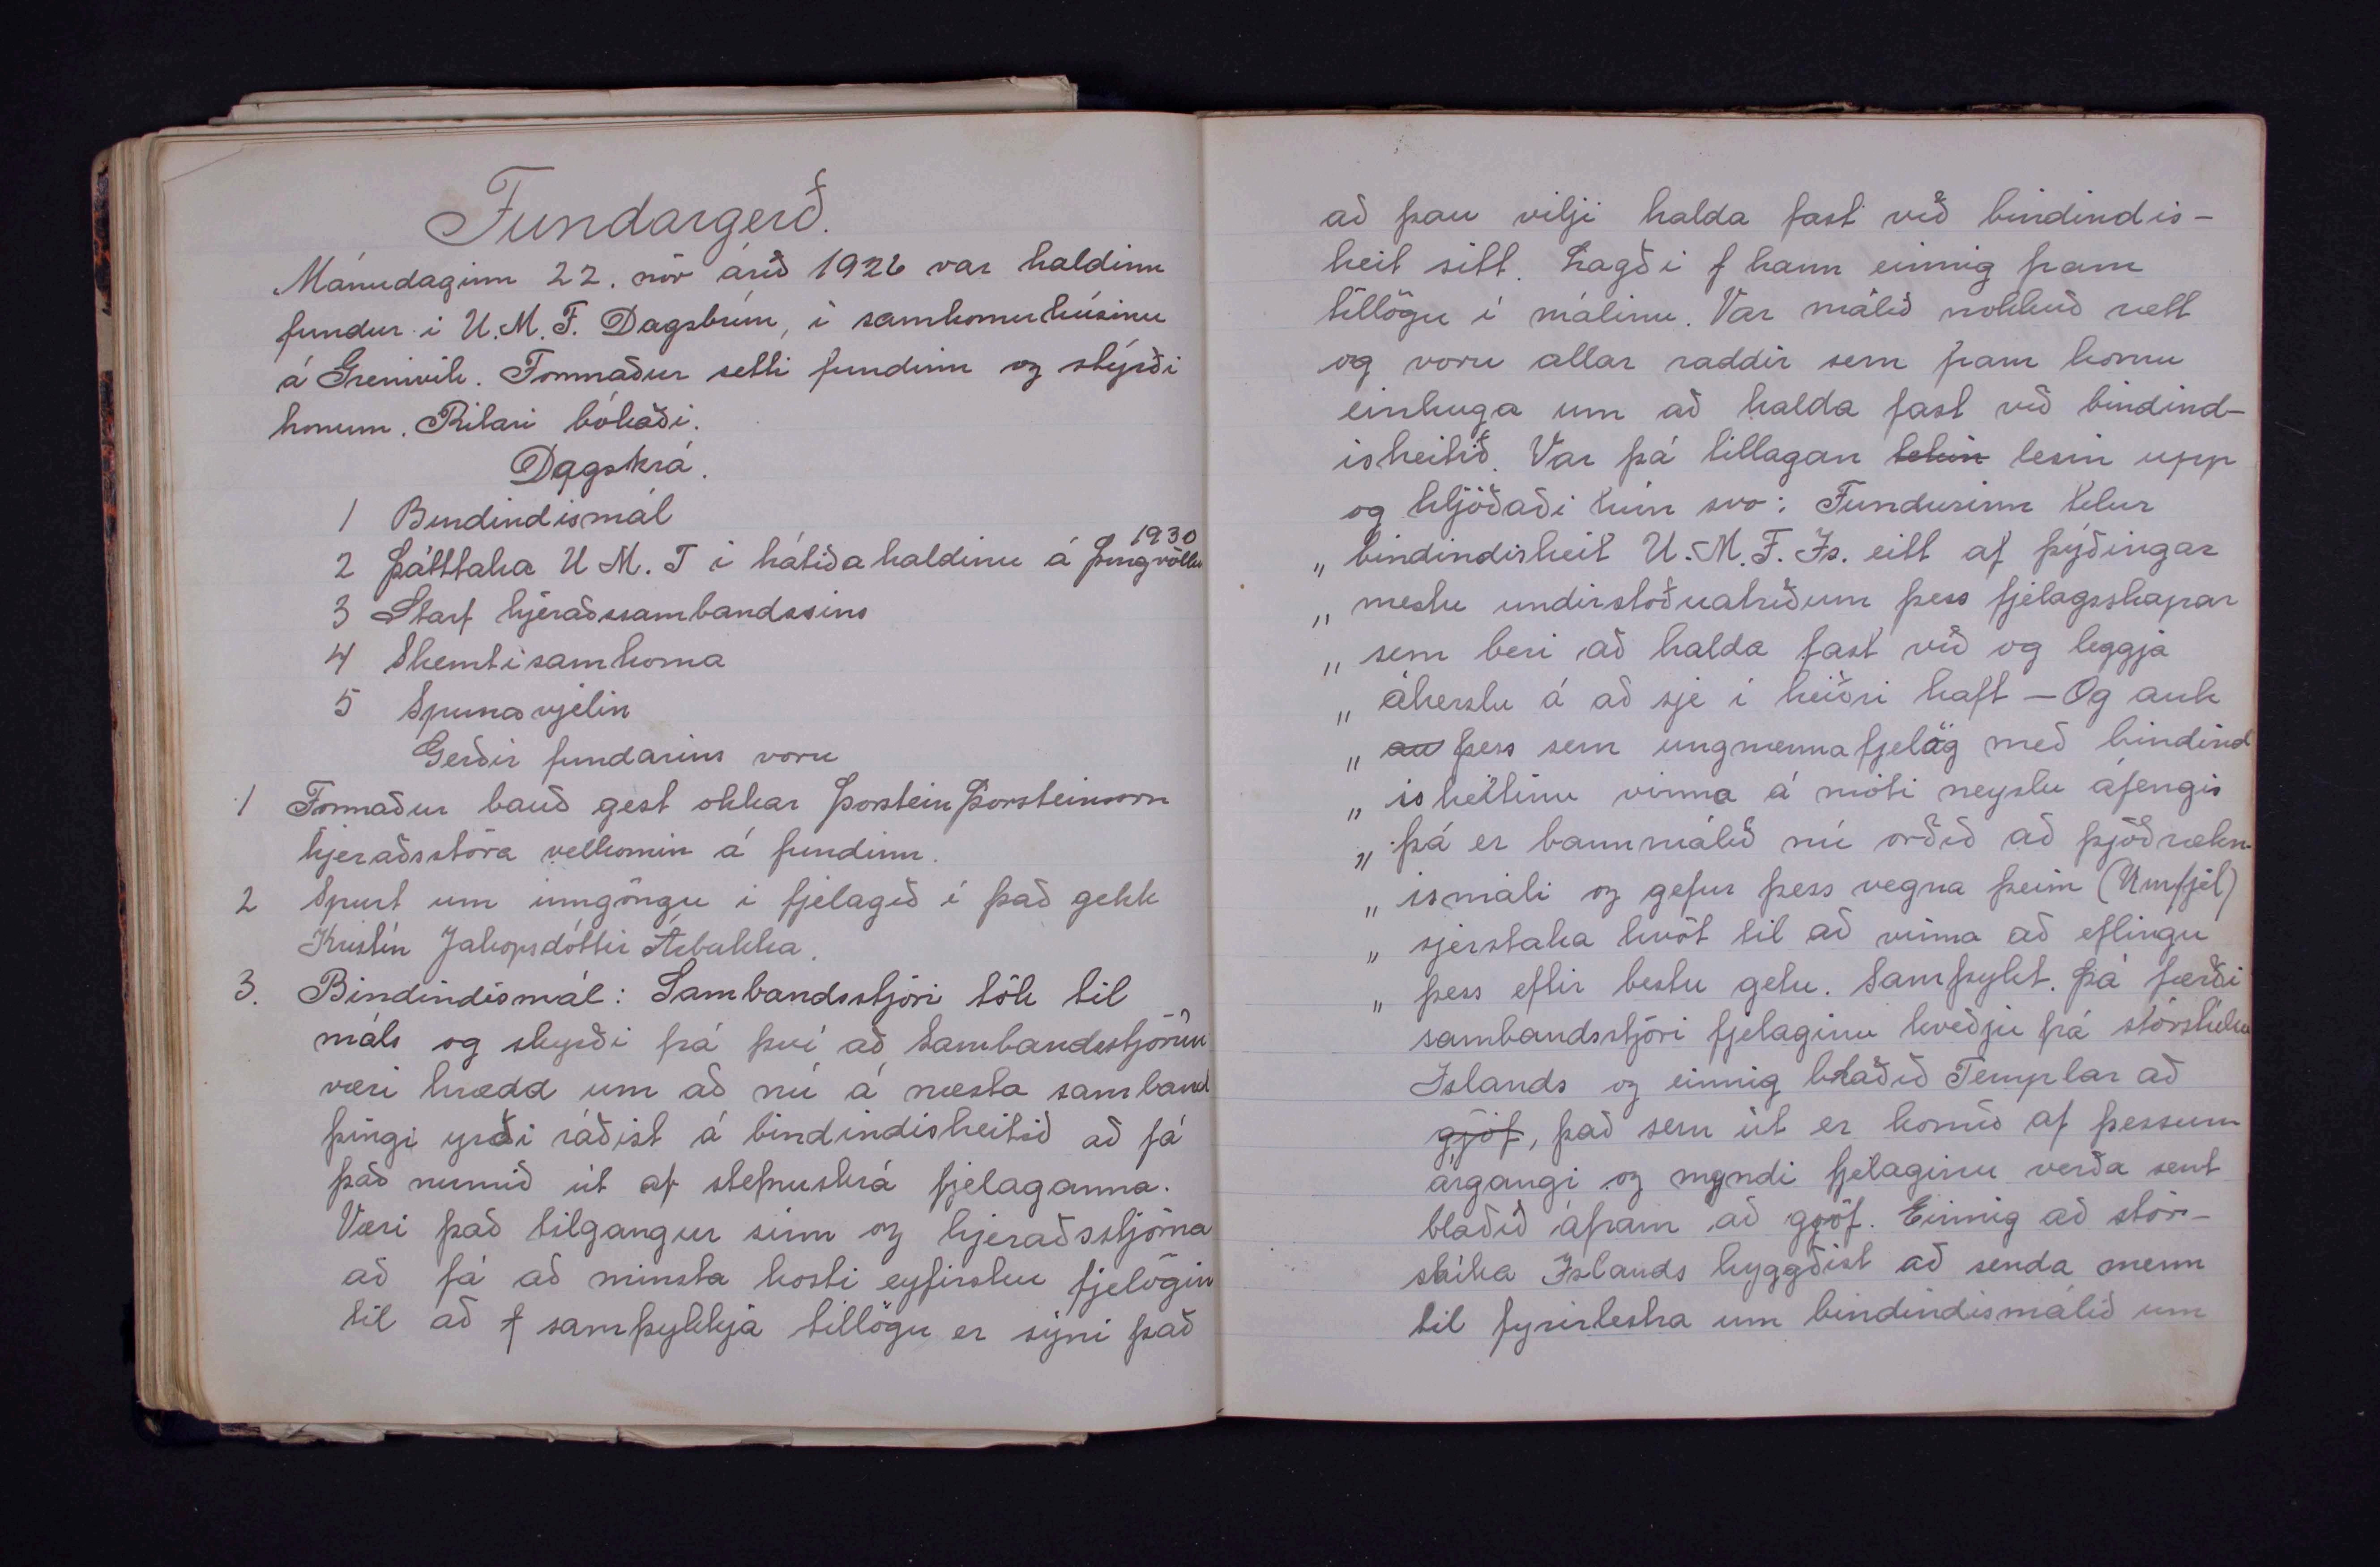 Fundargerð.
Mánudaginn 22. nóv árið 1926 var haldinn
fundur í U.M.F. Dagsbrún, í samkomuhúsinu
á Grenivík. Formaður setti fundinn og stýrði
honum. Ritari bókaði.
Dagskrá.
1 Bindindismál
2 Þátttaka U M. F í hátíðahaldinu á Þingvöllu 1930
3 Starf hjéraðssambandssins
4 Skemtisamkoma
5 Spunavjelin
Gerðir fundarins voru
1 Formaður bauð gest okkar Þorstein Þorsteinsson
hjeraðsstóra velkomin á fundinn.
2 Spurt um inngöngu í fjelagið í það gekk
Kristín Jakopsdóttir Árbakka.
3. Bindindismál: Sambandsstjóri tók til
máls og skyrði frá því að Sambandsstjórnin
væri hrædd um að nú á næsta samband
þingi yrði ráðist á bindindisheitið að fá
það numið út af stefnuskrá fjelaganna.
Væri það tilgangur sinn og hjeraðsstjórna
að fá að minsta kosti eyfirsku fjelögin
til að f samþykkja tillögu er sýni það
að þau vilji halda fast við bindindis-
heit sitt. Lagði f hann einnig fram
tillögu í málinu. Var málið nokkuð rætt
og voru allar raddir sem fram komu
einhuga um að halda fast við bindind-
isheitið. Var þá tillagan tekin lesin upp
og hljóðaði hún svo: Fundurinn telur
„ bindindisheit U.M.F. Ís. eitt af þýðingar
„ mestu undirstöðuatriðum þess fjelagsskapar
„ sem beri að halda fast við og leggja
„ áherslu á að sje í heiðri haft – Og auk
„ au þess sem ungmennafjelög með bindind
„ isheitinu vinna á móti neyslu áfengis
„ þá er bannmálið nú orðið að þjóðrækn-
„ ismáli og gefur þess vegna þeim (Umfjél)
„ sjerstaka hvöt til að vinna að eflingu
„ þess eftir bestu getu. Samþykt. Þá færði
sambandsstjóri fjelaginu kveðju frá stórstúku
Íslands og einnig blaðið Templar að
gjöf, það sem út er komið af þessum
árgangi og myndi fjelaginu verða sent
blaðið áfram að gjöf. Einnig að stór-
stúka Íslands hyggðist að senda menn
til fyrirlestra um bindindismálið um